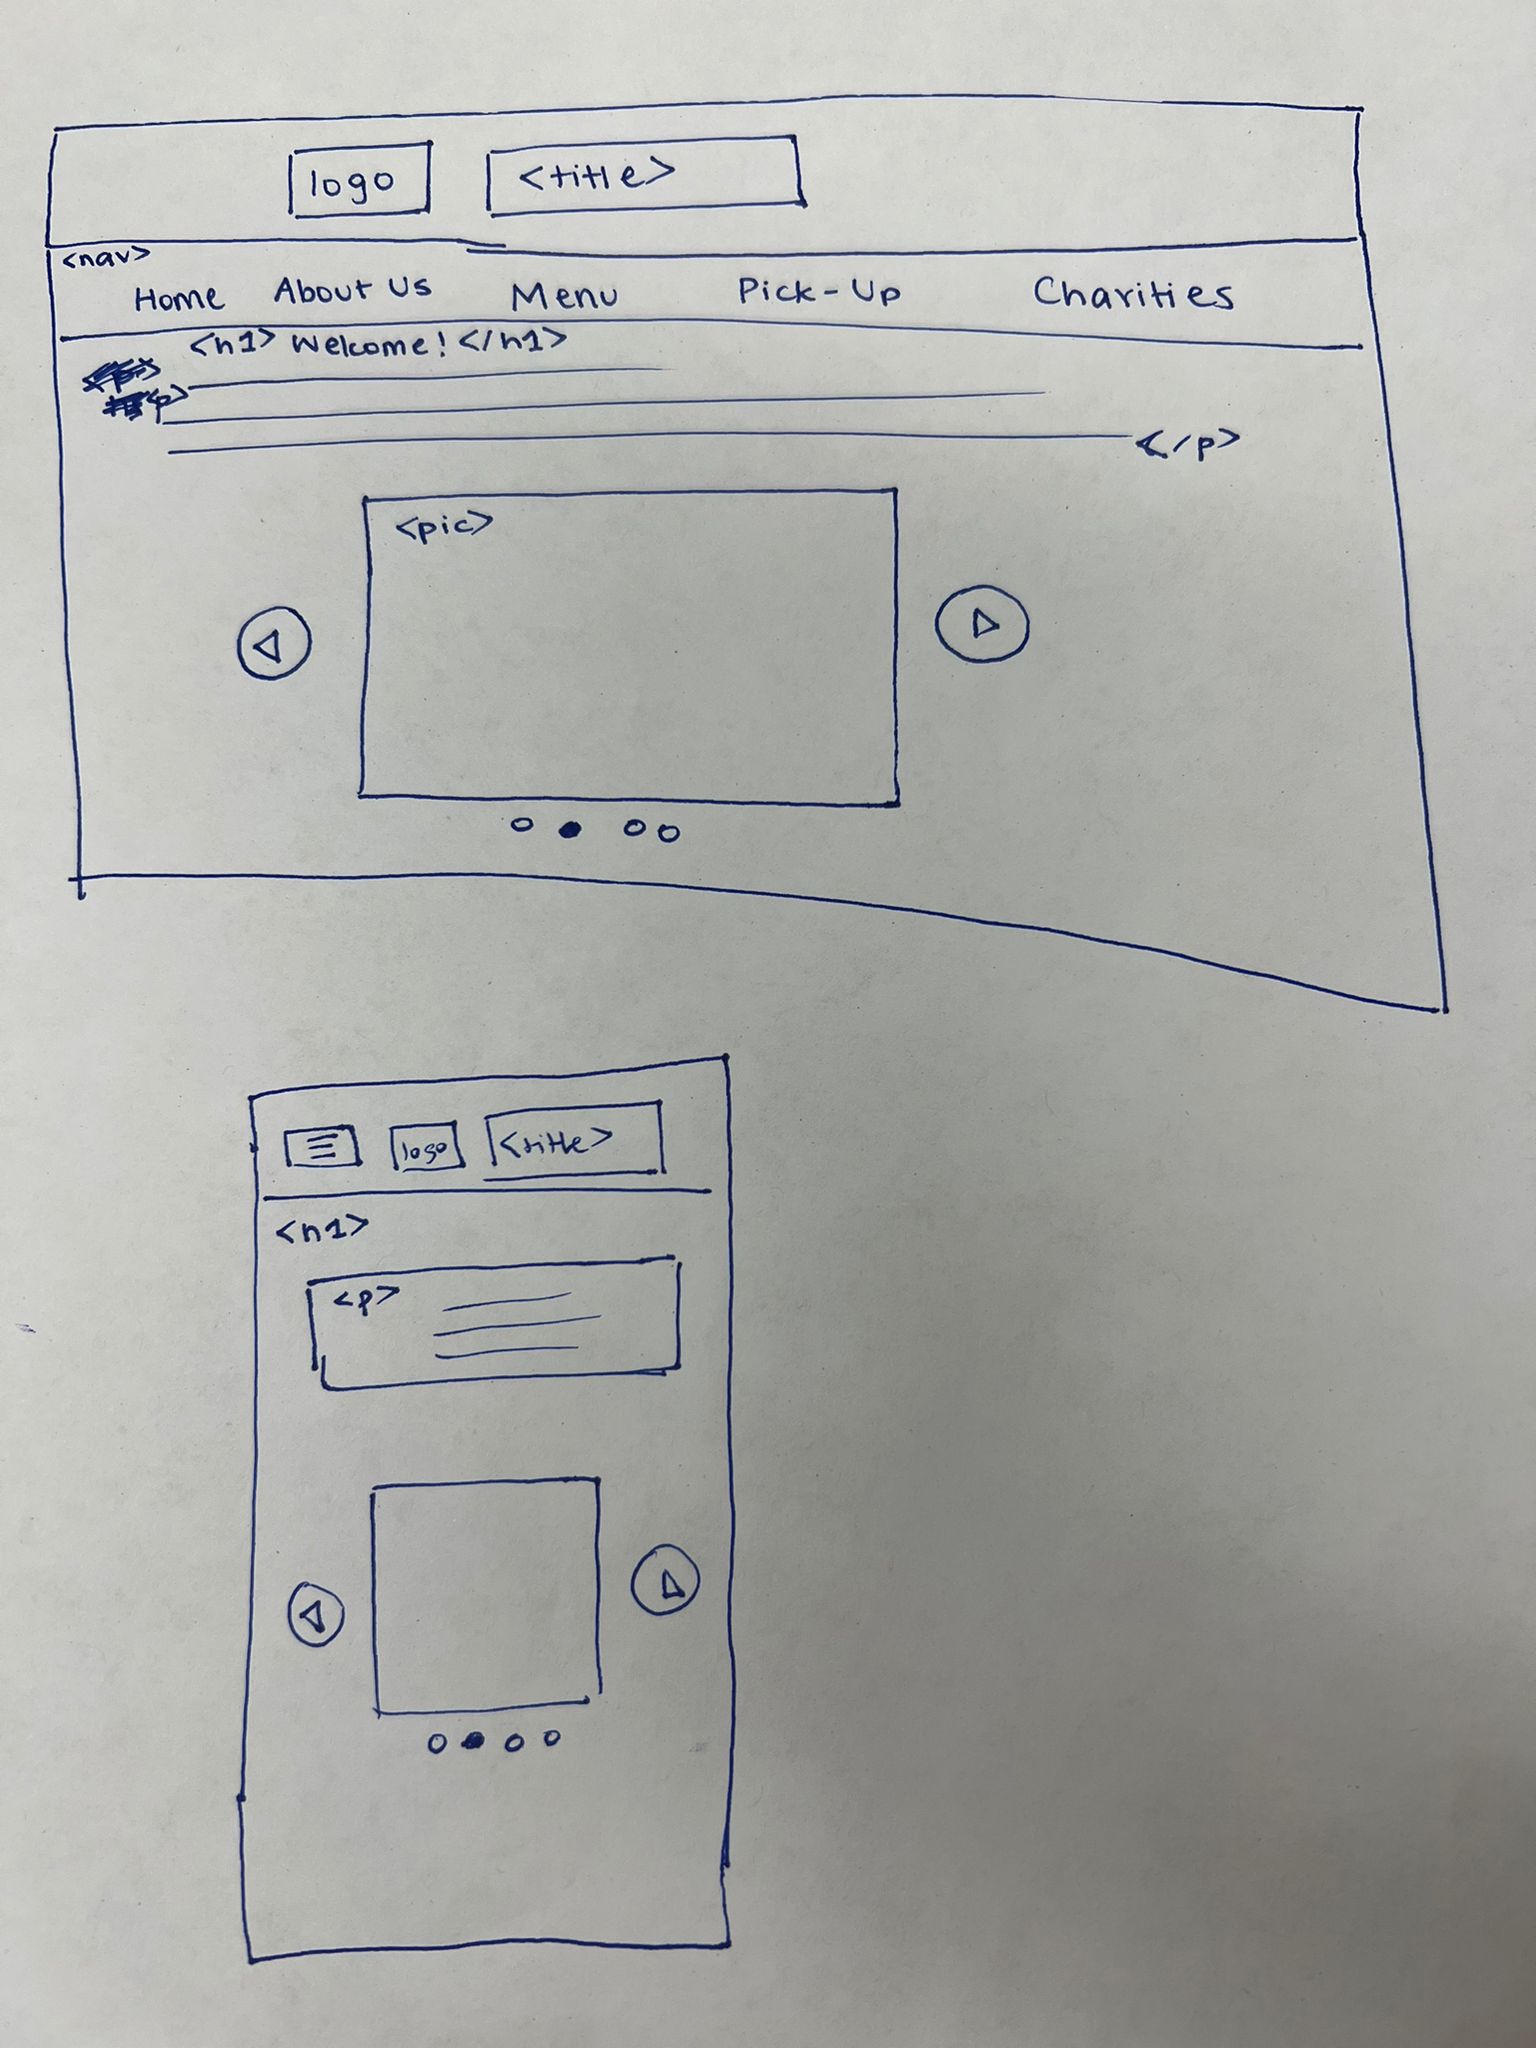 logo <title>
<nav>
Home About Us Menu Pick-Up Charities
<h1> Welcome! </h1>
<p>
</p>
<pic>
logo <title>
<h1>
<p>